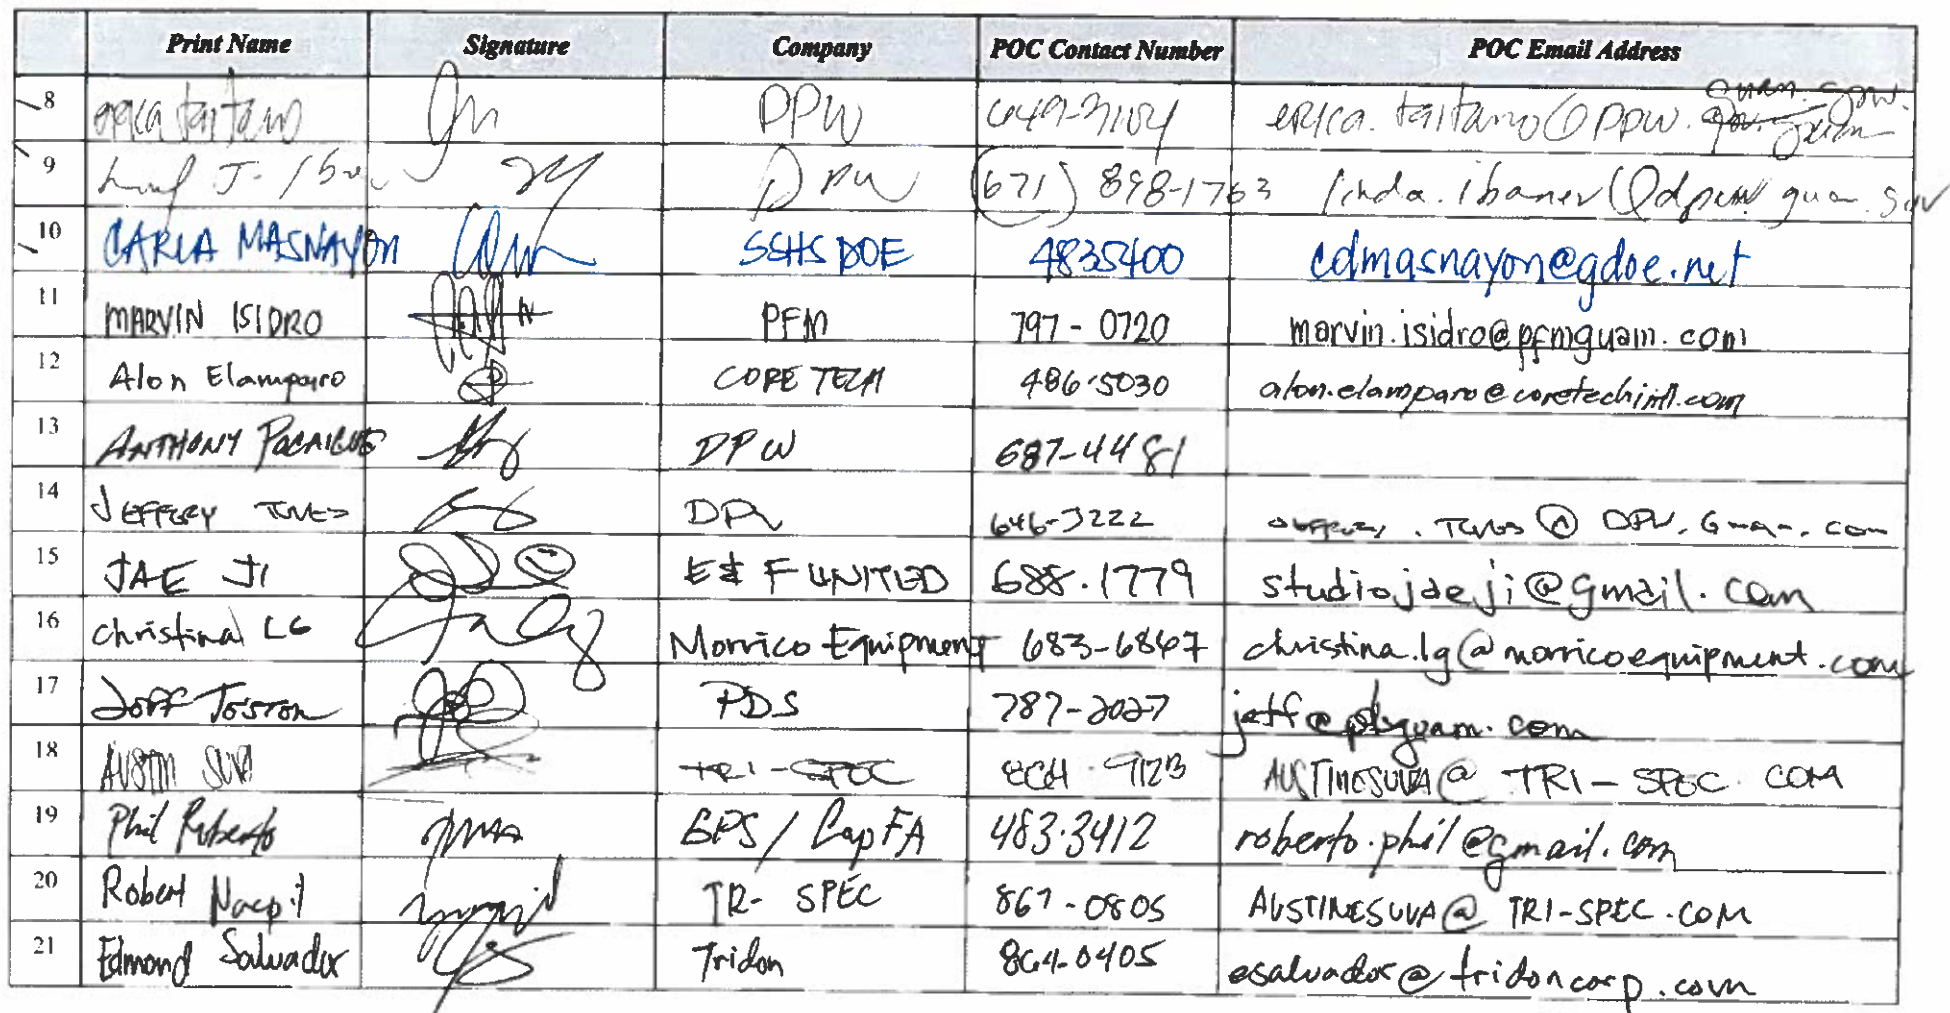 Print Name Signature Company POC Contact Number POC Email Address
8 erica taitano DPW 649-3104 erica.taitano@dpw. guam.gov.
9 J. DPW (671) 898-1763 linda.ibanez@dpw.guam.gov
10 CARLA MASNAYON SSHS DOE 4835400 cdmasnayon@gdoe.net
11 MARVIN ISIDRO PFM 797-0720 marvin.isidro@pfmguam.com
12 Alon Elamparo CORE TECH 486-5030 alon.elamparo@coretechintl.com
13 ANTHONY DPW 687-4481
14 JEFFERY DPW 646-3222 @ DPW.Guam.com
15 JAE JI E & F UNITED 688.1779 studiojaeji@gmail.com
16 christina LG Morrico Equipment 683-6847 christina.lg@morricoequipment.com
17 Toston PDS 787-2027 jeff@pdsguam.com
18 AUSTIN SUVA TRI-SPEC AUSTINESUVA@TRI-SPEC.COM
19 Phil Roberto GPS/CapFA 483-3412 roberto.phil@gmail.com
20 Robert Nacpil TR- SPEC 867-0805 AUSTINESUVA@TRI-SPEC.COM
21 Edmond Salvador Tridon 864-0405 esalvador@tridoncorp.com